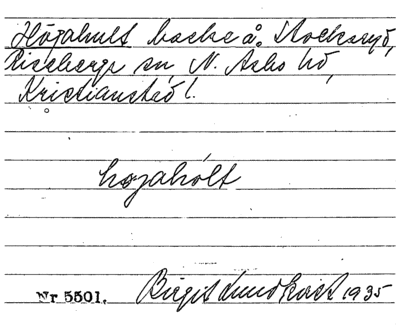 Högahult backe å. Stockaryd,
Riseberga sn N. Åsbo hd,
Kristianstad l.
hɵgahólt
Nr 5501. Birgit Lundkvist 1935